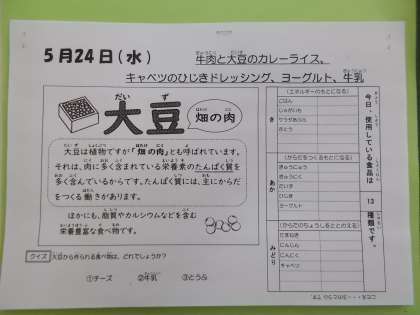 5月24日(水)
牛肉と大豆のカレーライス、
キャベツのひじきドレッシング、ヨーグルト、牛乳
大豆
だい ず
畑の肉
はたけ にく
大豆は植物ですが「畑の肉」とも呼ばれています。
それは、肉に多く含まれている栄養素のたんぱく質を
多く含んでいるからです。たんぱく質には、主にからだ
をつくる働きがあります。
ほかにも、脂質やカルシウムなどを含む
栄養豊富な食べ物です。
クイズ 大豆から作られる食べ物は、どれでしょうか?
①チーズ ②牛乳 ③とうふ
今日、使用している食品は 13 種類です。
き
(エネルギーのもとになる)
ごはん
じゃがいも
サラダあぶら
さとう
あか
(からだをつくるもとになる)
ぎゅうにゅう
ぎゅうにく
だいず
ひじき
ヨーグルト
みどり
(からだのちょうしをととのえる)
たまねぎ
にんじん
にんにく
キャベツ